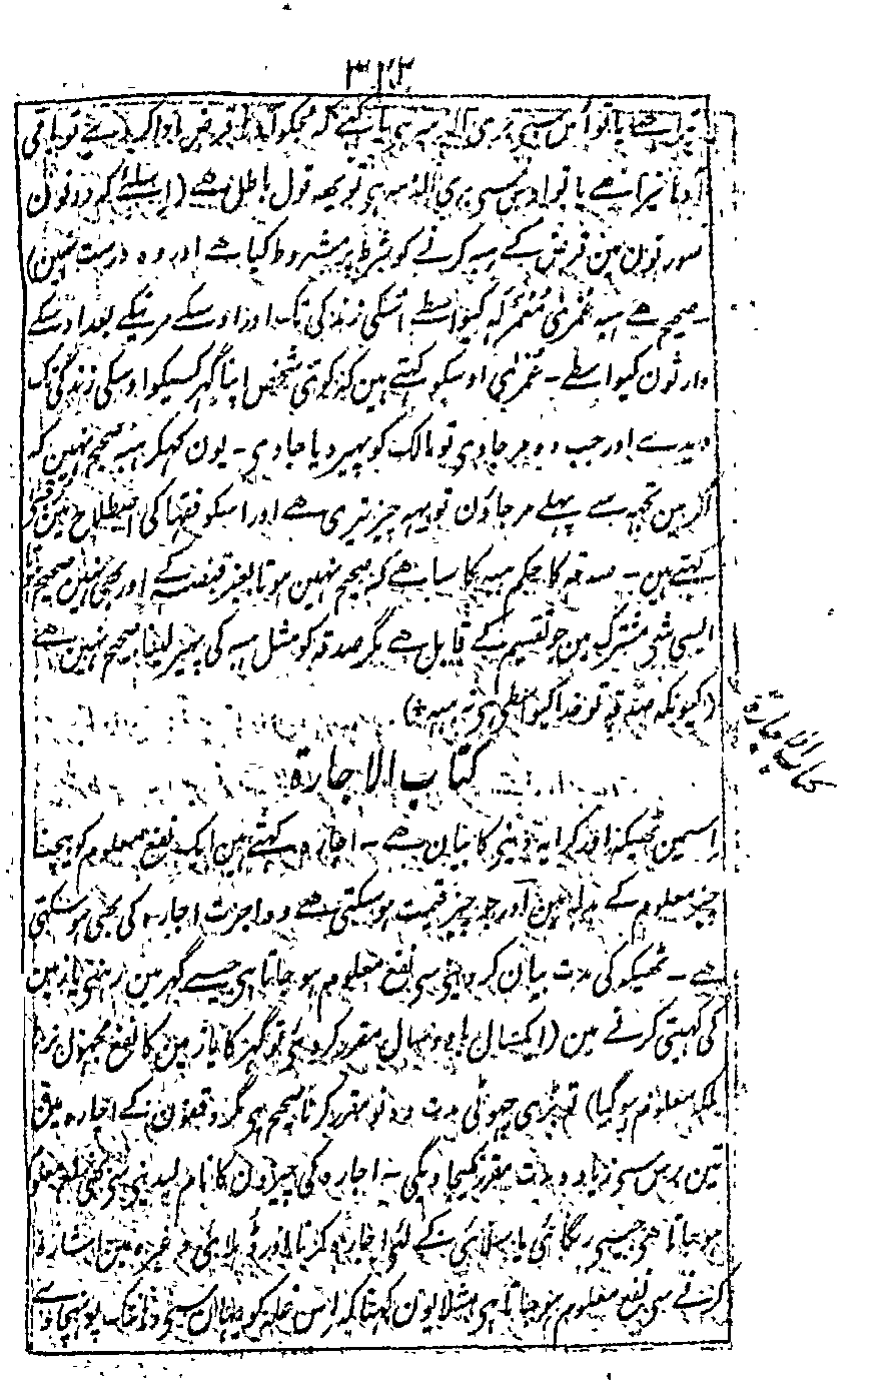 ۳۲۳
تیرا ہے یا تو اُس سے بری الذمہ ہی یا کہے کہ مجکو آدھا قرض ادا کردے تو باقی
آدھا تیرا ہے یا تو اوس سی بری الذمہ ہی تو یہہ قول باطل ہے (اسلئے کہ دونون
صورتون مین قرض کے ہبہ کرنے کو شرط پر مشروط کیا ہے اور وہ درست نہین)
صحیح ہے ہبہ عُمریٰ مُعمَر لہ کیواسطے اسکی زندگی تک اور اوسکے مرنیکے بعد اوسکے
وارثون کیواسطے ۔ عُمریٰ اوسکو کہتے ہین کہ کوئی شخص اپنا گہر کسیکو اوسکی زندگی تک
دیدے اور جب وہ مر جاوی تو مالک کو پہیر دیا جاوی ۔ یون کہکر ہبہ صحیح نہین کہ
اگر مین تجہہ سے پہلے مر جاؤن تو یہہ چیز تیری ہے اور اسکو فقہا کی اصطلاح مین رقبیٰ
کہتے ہین ۔ صدقہ کا حکم ہبہ کا سا ہے کہ صحیح نہین ہوتا بغیر قبضہ کے اور بھی نہین صحیح ہوتا
ایسی شی مشترک مین جو تقسیم کے قابل ہے مگر صدقہ کو مثل ہبہ کی پہیر لینا صحیح نہین ہے
(کیونکہ صدقہ تو خدا کیواسطی ہی نہ ہبہ)
کتاب الاجارۃ
کتاب الاجارۃ
اسمین ٹھیکہ اور کرایہ دینی کا بیان ہے ۔ اجارہ کہتے ہین ایک نفع معلوم کو بیچنا
چیز معلوم کے بدلہ مین اور جو چیز قیمت ہو سکتی ہے وہ اجرت اجارہ کی بھی ہو سکتی
ہے ۔ ٹھیکو کی مدت بیان کر دینی سی نفع معلوم ہو جاتا ہی جیسے گہر مین رہنی یا زمین
کی کہیتی کرنے مین (ایکسال یا دو سال مقرر کر دئی تو گہر کا یا زمین کا نفع مجہول نرہا
بلکہ معلوم ہو گیا) تو بڑی چہوٹی مدت دونو مقرر کرنا صحیح ہی مگر وقفون کے اجارہ مین
تین برس سی زیادہ مدت مقرر نکیجاویگی ۔ اجارہ کی چیزون کا نام لیدینی سی بھی نفع معلوم
ہو جاتا ھی جیسی رنگائی یا سلائی کے لئی اجارہ کرنا اور ڈہلائی وغیرہ مین اشارہ
کرنے سی نفع معلوم ہو جاتا ہی مثلا یون کہنا کہ اس غلہ کو یہان سی وہان تک پہنچا دے